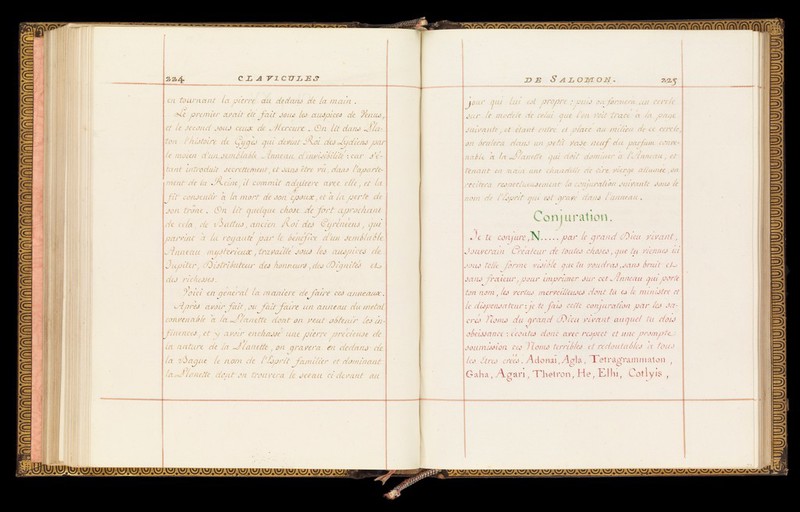 224 CLAVICULES
en tournant la pierre au dedans de la main.
Le premier avait été fait sous les auspices de Venus,
et le second sous ceux de Mercure. On lit dans Pla-
ton l'histoire de Gygés qui devint Roi des Lydiens par
le moyen d'un semblable Anneau d'invisibilité : car s'é-
tant introduit secretement, et sans être vu, dans l'aparte-
ment de la Reine, il commit adultere avec elle, et la
fit consentir à la mort de son époux, et à la perte de
son trône. On lit quelque chose de fort aprochant
de cela, de Battus, ancien Roi des Cyréniens, qui
parvint à la royauté par le bénéfice d'un semblable
Anneau mysterieux, travaillé sous les auspices de
Jupiter, Distributeur des honneurs, des Dignités et
des richesses.
Voici en général la maniere de faire ces anneaux.
Après avoir fait, ou fait faire un anneau du metal
convenable à la Planette dont on veut obtenir les in-
fluences, et y avoir enchassé une pierre précieuse de
la nature de la Planette, on gravera en dedans de
la Bague le nom de l'Esprit familier et dominant
la Planette, dont on trouvera le sceau ci devant au
DE SALOMON. 225
jour qui lui est propre ; puis on formera un cercle
sur le modele de celui que l'on voit tracé à la page
suivante, et étant entré et placé au milieu de ce cercle,
on brulera dans un petit vase neuf du parfum conve-
nable à la Planette qui doit dominer à l'Anneau ; et
tenant en main une chandelle de cire vierge allumée, on
recitera respectueusement la conjuration suivante sous le
nom de l'Esprit qui est gravé dans l'anneau.
Conjuration.
Je te conjure, N..... par le grand Dieu vivant,
Souverain Créateur de toutes choses, que tu viennes ici
sous telle forme visible que tu voudras, sans bruit et
sans fraïeur, pour imprimer sur cet Anneau qui porte
ton nom, les vertus merveilleuses dont tu es le ministre et
le dispensateur : je te fais cette conjuration par les sa-
crés Noms du grand Dieu vivant auquel tu dois
obéissance : écoutes donc avec respect et une prompte
soumission ces Noms terribles et redoutables à tous
les êtres créés, Adonai, Agla, Tetragrammaton,
Gaha, Agari, Thetron, He, Elhi, Cotlyis,